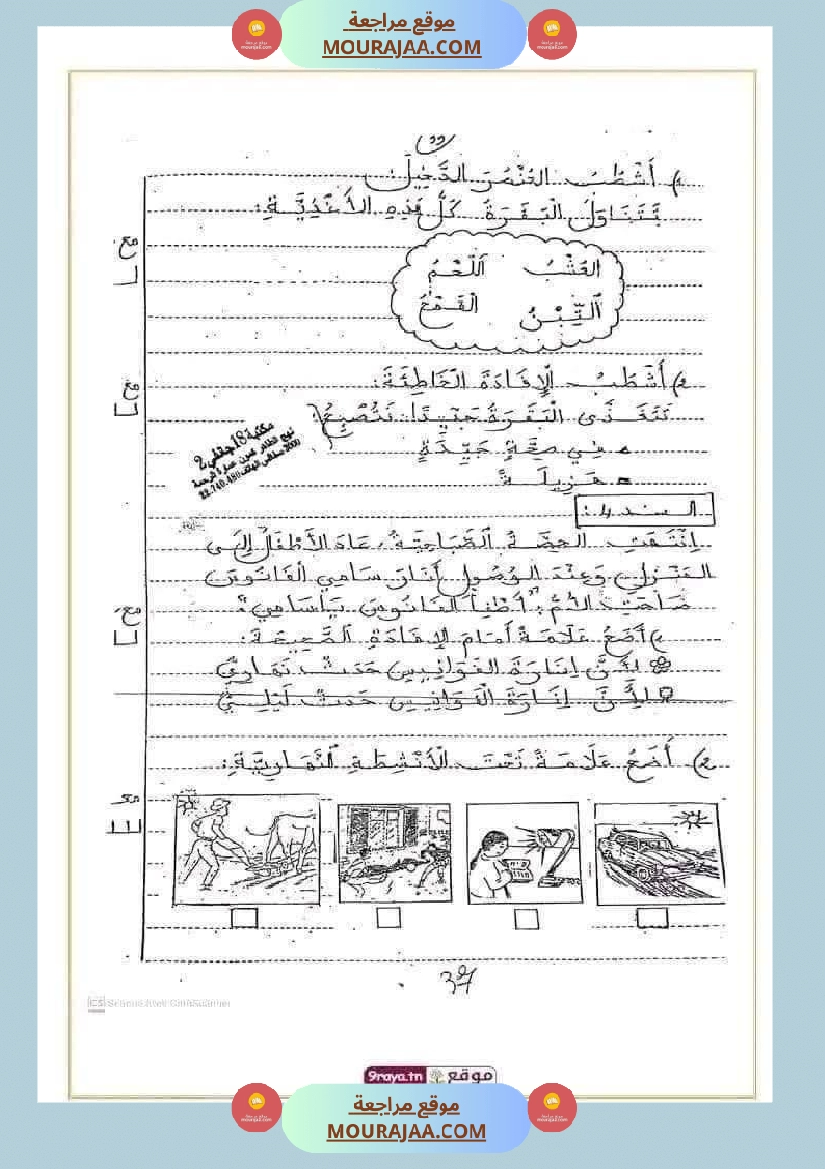 موقع مراجعة
MOURAJAA.COM
1) أَشْطُبُ العُنْصُرَ الدَّخِيلَ:
تَتَنَاوَلُ الْبَقَرَةُ كُلَّ هَذِهِ الأَغْذِيَّةِ:
العُشْبُ اللَّحْمُ
التِّبْنُ الْقَمْحُ
مع
2) أَشْطُبُ الإِفَادَةَ الخَاطِئَةَ:
تَتَغَذَّى الْبَقَرَةُ جَيِّدًا: فَتُصْبِحُ:
فِي صِحَّةٍ جَيِّدَةٍ
هَزِيلَةً
مع
مكتبة 18 جانفي 2
السند 4:
اِنْتَهَتِ الحِصَّةُ الصَّبَاحِيَّةُ، عَادَ الأَطْفَلُ إِلَى
المَنْزِلِ وَعِنْدَ الوُصُولِ أَنَارَ سَامِي الفَانُوسَ
صَاحَتِ الأُمُّ: "أَطْفِأِ الفَانُوسَ يَا سَامِي":
مع
1) أَضَعُ عَلَامَةً أَمَامَ الإِفَادَةِ الصَّحِيحَةِ:
لِأَنَّ إِنَارَةَ الفَوَانِيسِ حَدَثٌ نَهَارِيٌّ
لِأَنَّ إِنَارَةَ الْفَوَانِيسِ حَدَثٌ لَيْلِيٌّ
2) أَضَعُ عَلَامَةً تَحْتَ الْأَنْشِطَةِ النَّهَارِيَّةِ:
مع
37
CS Scanned with CamScanner
9raya.tn موقع
موقع مراجعة
MOURAJAA.COM